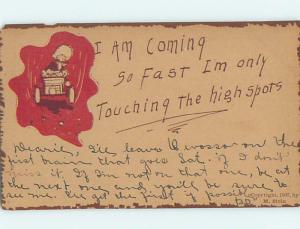 I AM Coming
So Fast Im only
Touching the high spots
Dearie, I'll leave Owosso on the
first train that goes Sat. If I don't
miss it. If I'm not on that one, be at
the next one and you'll be sure to
see me. I'll get the first if possible.
Copyright, 1907, by
M. Stein